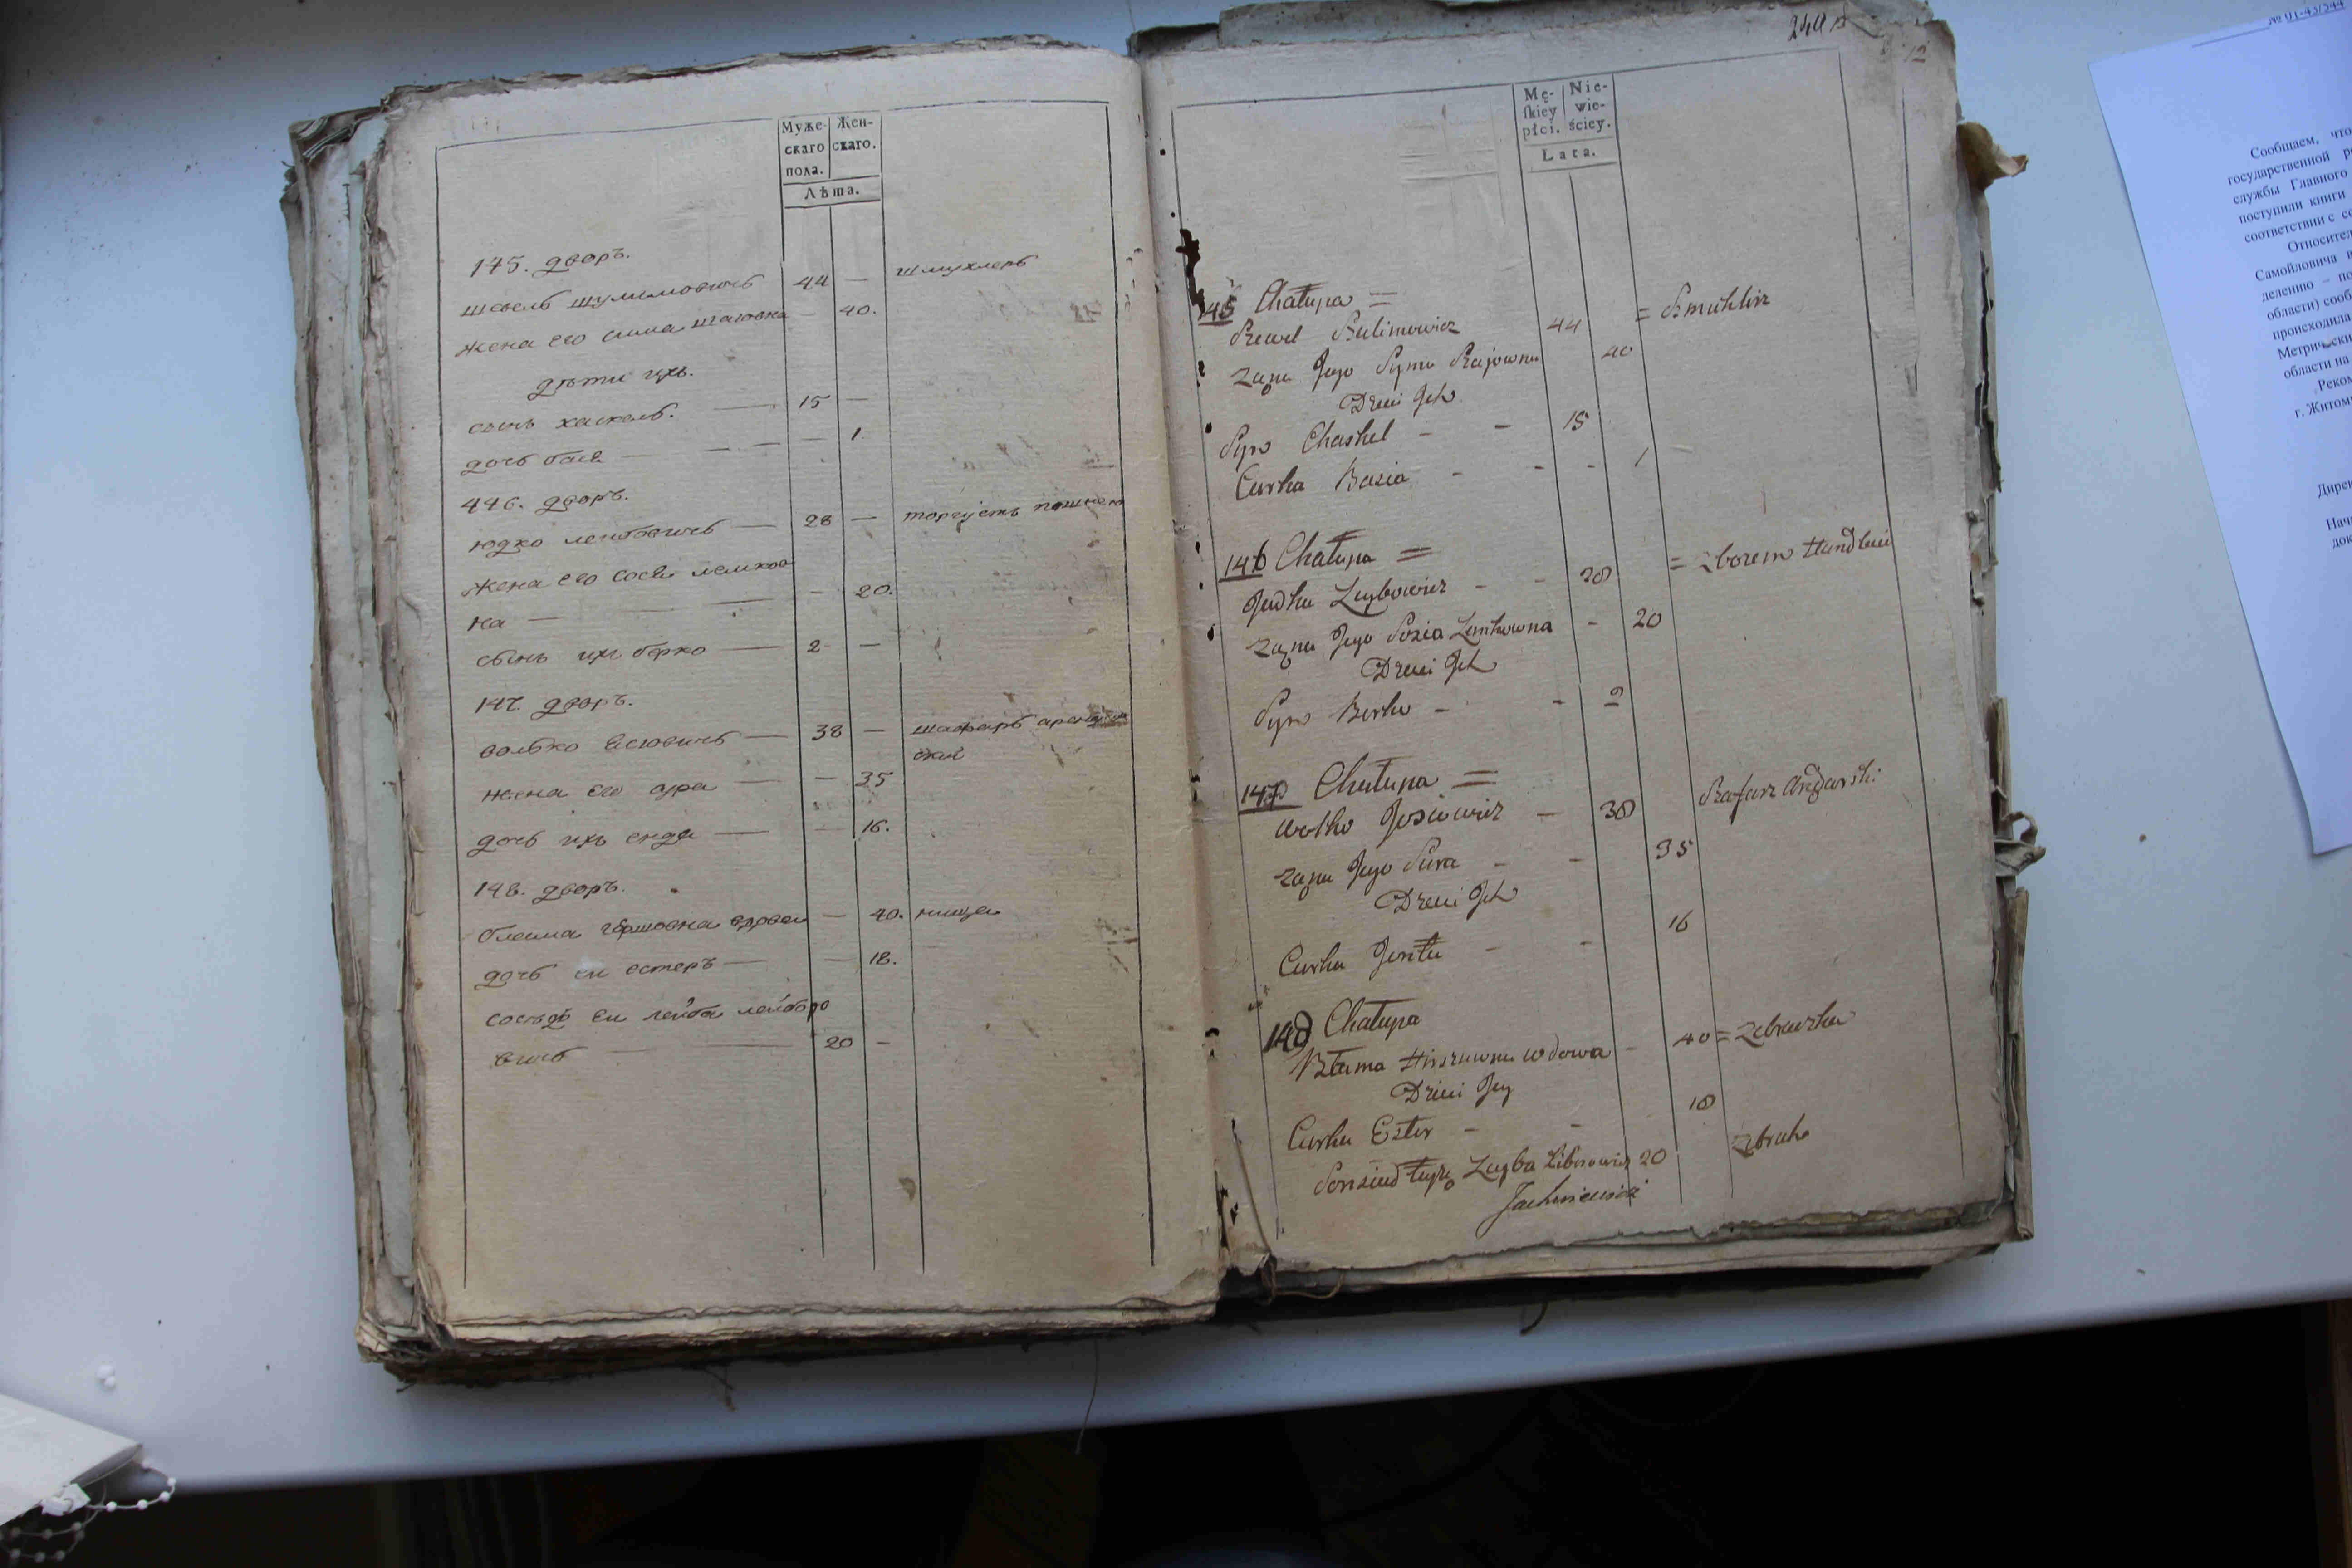 Муже-
скаго
пола.
Жен-
скаго.
Лѣта.
145. дворъ.
шевель шулимовичь 44 — шмуклеръ
жена его сима шаювна — 40.
дѣти ихъ.
сынъ хаскель. — 15 —
дочь бася — — — 1.
146. дворъ.
юдко лейбовичь — 28 — торгуетъ пашнею
жена его сося лемков
на — — — 20.
сынъ ихъ берко — 2 —
147. дворъ.
волько іосіовичь — 38 — шафаръ
ский
жена его сура — — 35
дочь ихъ ента — — 16.
148. дворъ.
блюма гершовна вдова — 40. нища
дочь ея естеръ — — 18.
сосѣдъ ея лейба лейборо
вичь — — 20 —
240
12
Mę-
skiey
płci.
Nie-
wie-
ściey.
Łata.
145 Chałupa =
Szewel Szulimowicz 44 = Szmuklirz
żona Jego Syma Szajowna 40
Dzieci Ich
Syn Chaskel - - 15
Curka Basia - - - 1
146 Chałupa =
Judka Leybowicz - - 28 = zborem Handluie
żona Jego Sosia Lemkowna - 20
Dzieci Ich
Syn Berko - - 2
147 Chałupa =
Wolko Josiowicz - 38 Szafarz Arędarski
żona Jego Sura - - 35
Dzieci Ich
Curka Jenta - - 16
148 Chałupa
Bluma Hirszowna wdowa - 40 = Zebraczka
Dzieci Jey
Curka Ester - - 18
Sonsiad teyże Leyba Liborowicz 20 Zebrak
№ 01-43/544
Сообщаем, что
государственной
службы Главного
поступили книги
соответствии с
Относител
Самойловича
делению – по
области) сооб
происходила
Метрически
области на
Реком
г. Житом
Дирек
Нача
док